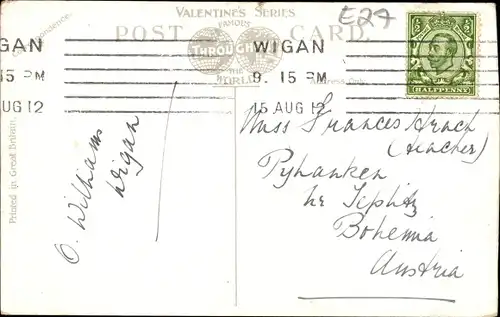 VALENTINE'S SERIES
FAMOUS
POST CARD.
THROUGHOUT
THE
WORLD
WIGAN
9. 15 PM
15 AUG 12
IGAN
15 PM
AUG 12
E27
HALFPENNY
Address Only
Printed in Great Britain.
O. Williams
Wigan
Miss Frances
(teacher)
Pyhanken
nr Teplitz
Bohemia
Austria